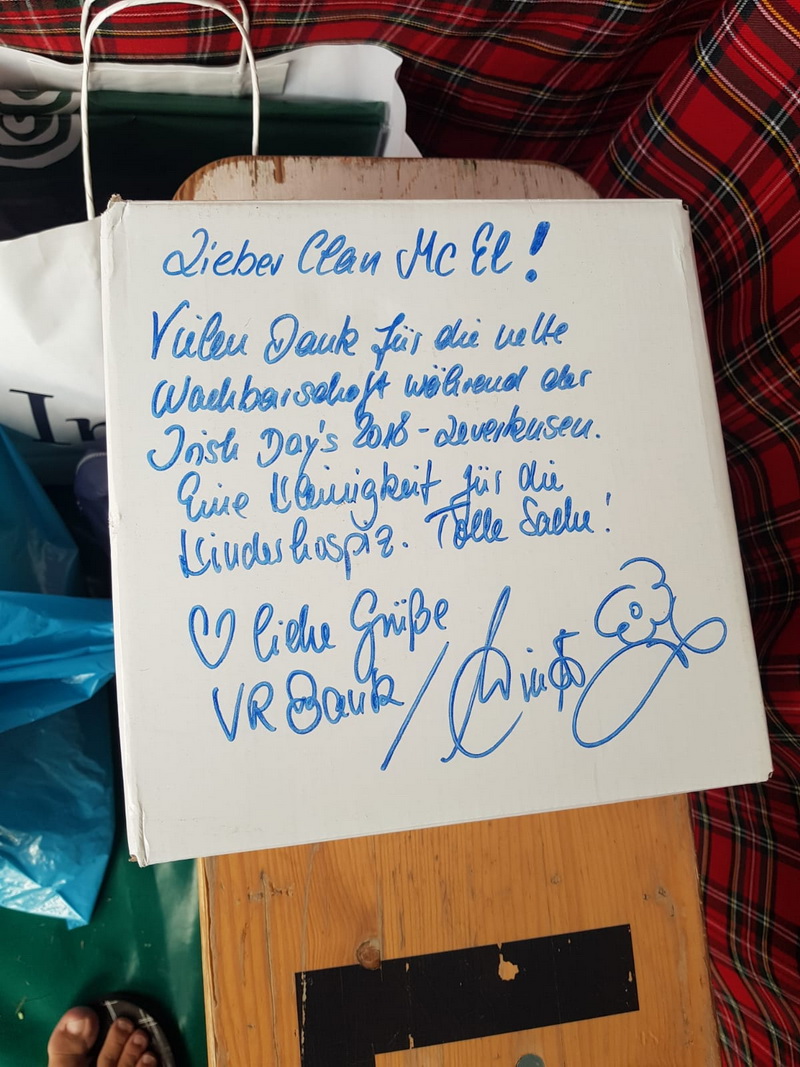 Lieber Clan Mc El!
Vielen Dank für die nette
Nachbarschaft während der
Irish Day's 2018 - Leverkusen.
Eine Kleinigkeit für die
Kinderhospiz. Tolle Sache!
♡ liche Grüße
VR Bank /
In